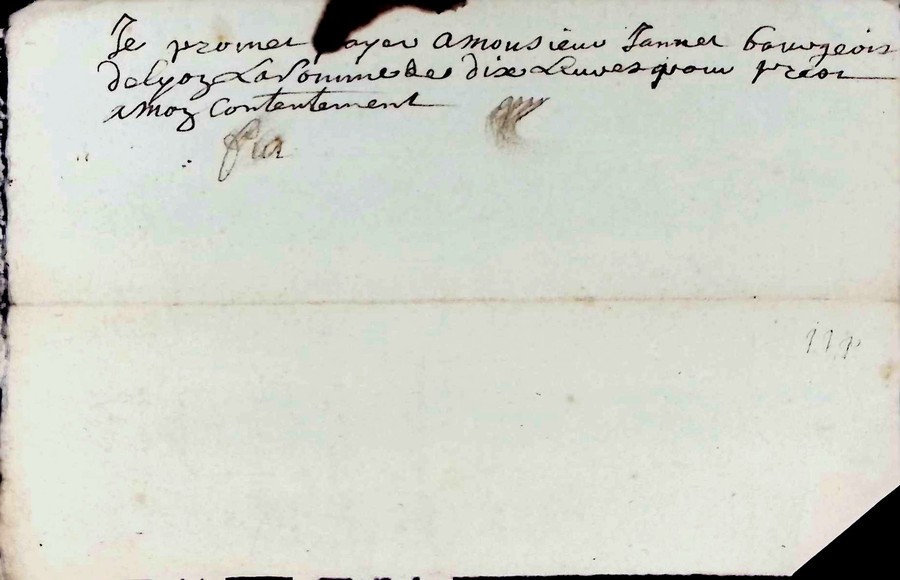 Je promet payer a monsieur Jannet bourgeois
de lyoz La somme de dix Livres pour prest
a moz contentement